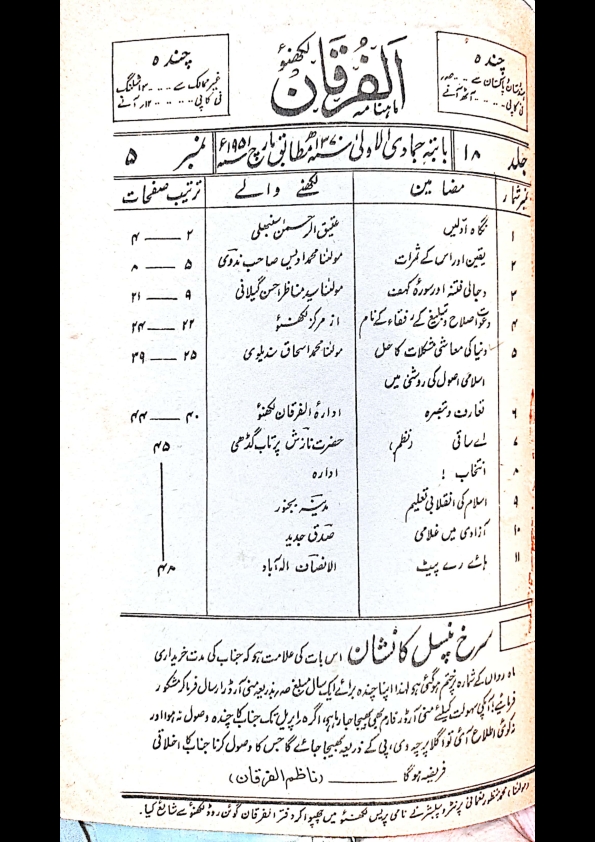 چندہ
ہندوستان و پاکستان سے
فی کاپی ..... آٹھ آنے
ماہنامہ الفرقان لکھنؤ
چندہ
غیر ممالک سے .... ۱۲ شلنگ
فی کاپی ..... ۱۲ر آنے
جلد ۱۸ بابتہ جمادی الاولیٰ سنہ ۱۳۷۰ھ مطابق مارچ سنہ ۱۹۵۱ء نمبر ۵
نمبر شمار مضامین لکھنے والے ترتیب صفحات
۱ نگاہ اولیں عتیق الرحمٰن سنبھلی ۲ — ۴
۲ یقین اور اس کے ثمرات مولٰنا محمد اویس صاحب ندوی ۵ — ۸
۳ دجالی فتنہ اور سورۂ کہف مولٰنا سید مناظر احسن گیلانی ۹ — ۲۱
۴ دعوت اصلاح و تبلیغ کے رفقاء کے نام از مرکز لکھنؤ ۲۲ — ۲۴
۵ دنیا کی معاشی مشکلات کا حل مولٰنا محمد اسحاق سندیلوی ۲۵ — ۳۹
اسلامی اصول کی روشنی میں
۶ تعارف و تبصرہ ادارۂ الفرقان لکھنؤ ۴۰ — ۴۴
۷ اے ساقی (نظم) حضرت نازش پرتاب گڈھی ۴۵
۸ انتخاب ! ادارہ
۹ اسلام کی انقلابی تعلیم مدینہ بجنور
۱۰ آزادی میں غلامی صدق جدید
۱۱ ہائے رے پیٹ الانصاف الہ آباد ۴۸
سرخ پنسل کا نشان اس بات کی علامت ہو کہ جناب کی مدت خریداری
ماہ رواں کے شمارہ پر ختم ہو گئی ہو لہٰذا اپنا چندہ برائے ایک سال مبلغ صہ بذریعہ منی آرڈر ارسال فرما کر مشکور
فرمایئے! آپکی سہولت کیلئے منی آرڈر فارم بھی بھیجا جا رہا ہو، اگر ۵ر اپریل تک جناب کا چندہ وصول نہ ہوا اور
نہ کوئی اطلاع آئی تو اگلا پرچہ وی، پی کے ذریعہ بھیجا جائے گا جس کا وصول کرنا جناب کا اخلاقی
فریضہ ہو گا ——— (ناظم الفرقان)
(مولٰنا) محمد منظور نعمانی پرنٹر و پبلیشر نے نامی پریس لکھنؤ میں چھپوا کر دفتر الفرقان گوئن روڈ لکھنؤ سے شایع کیا۔